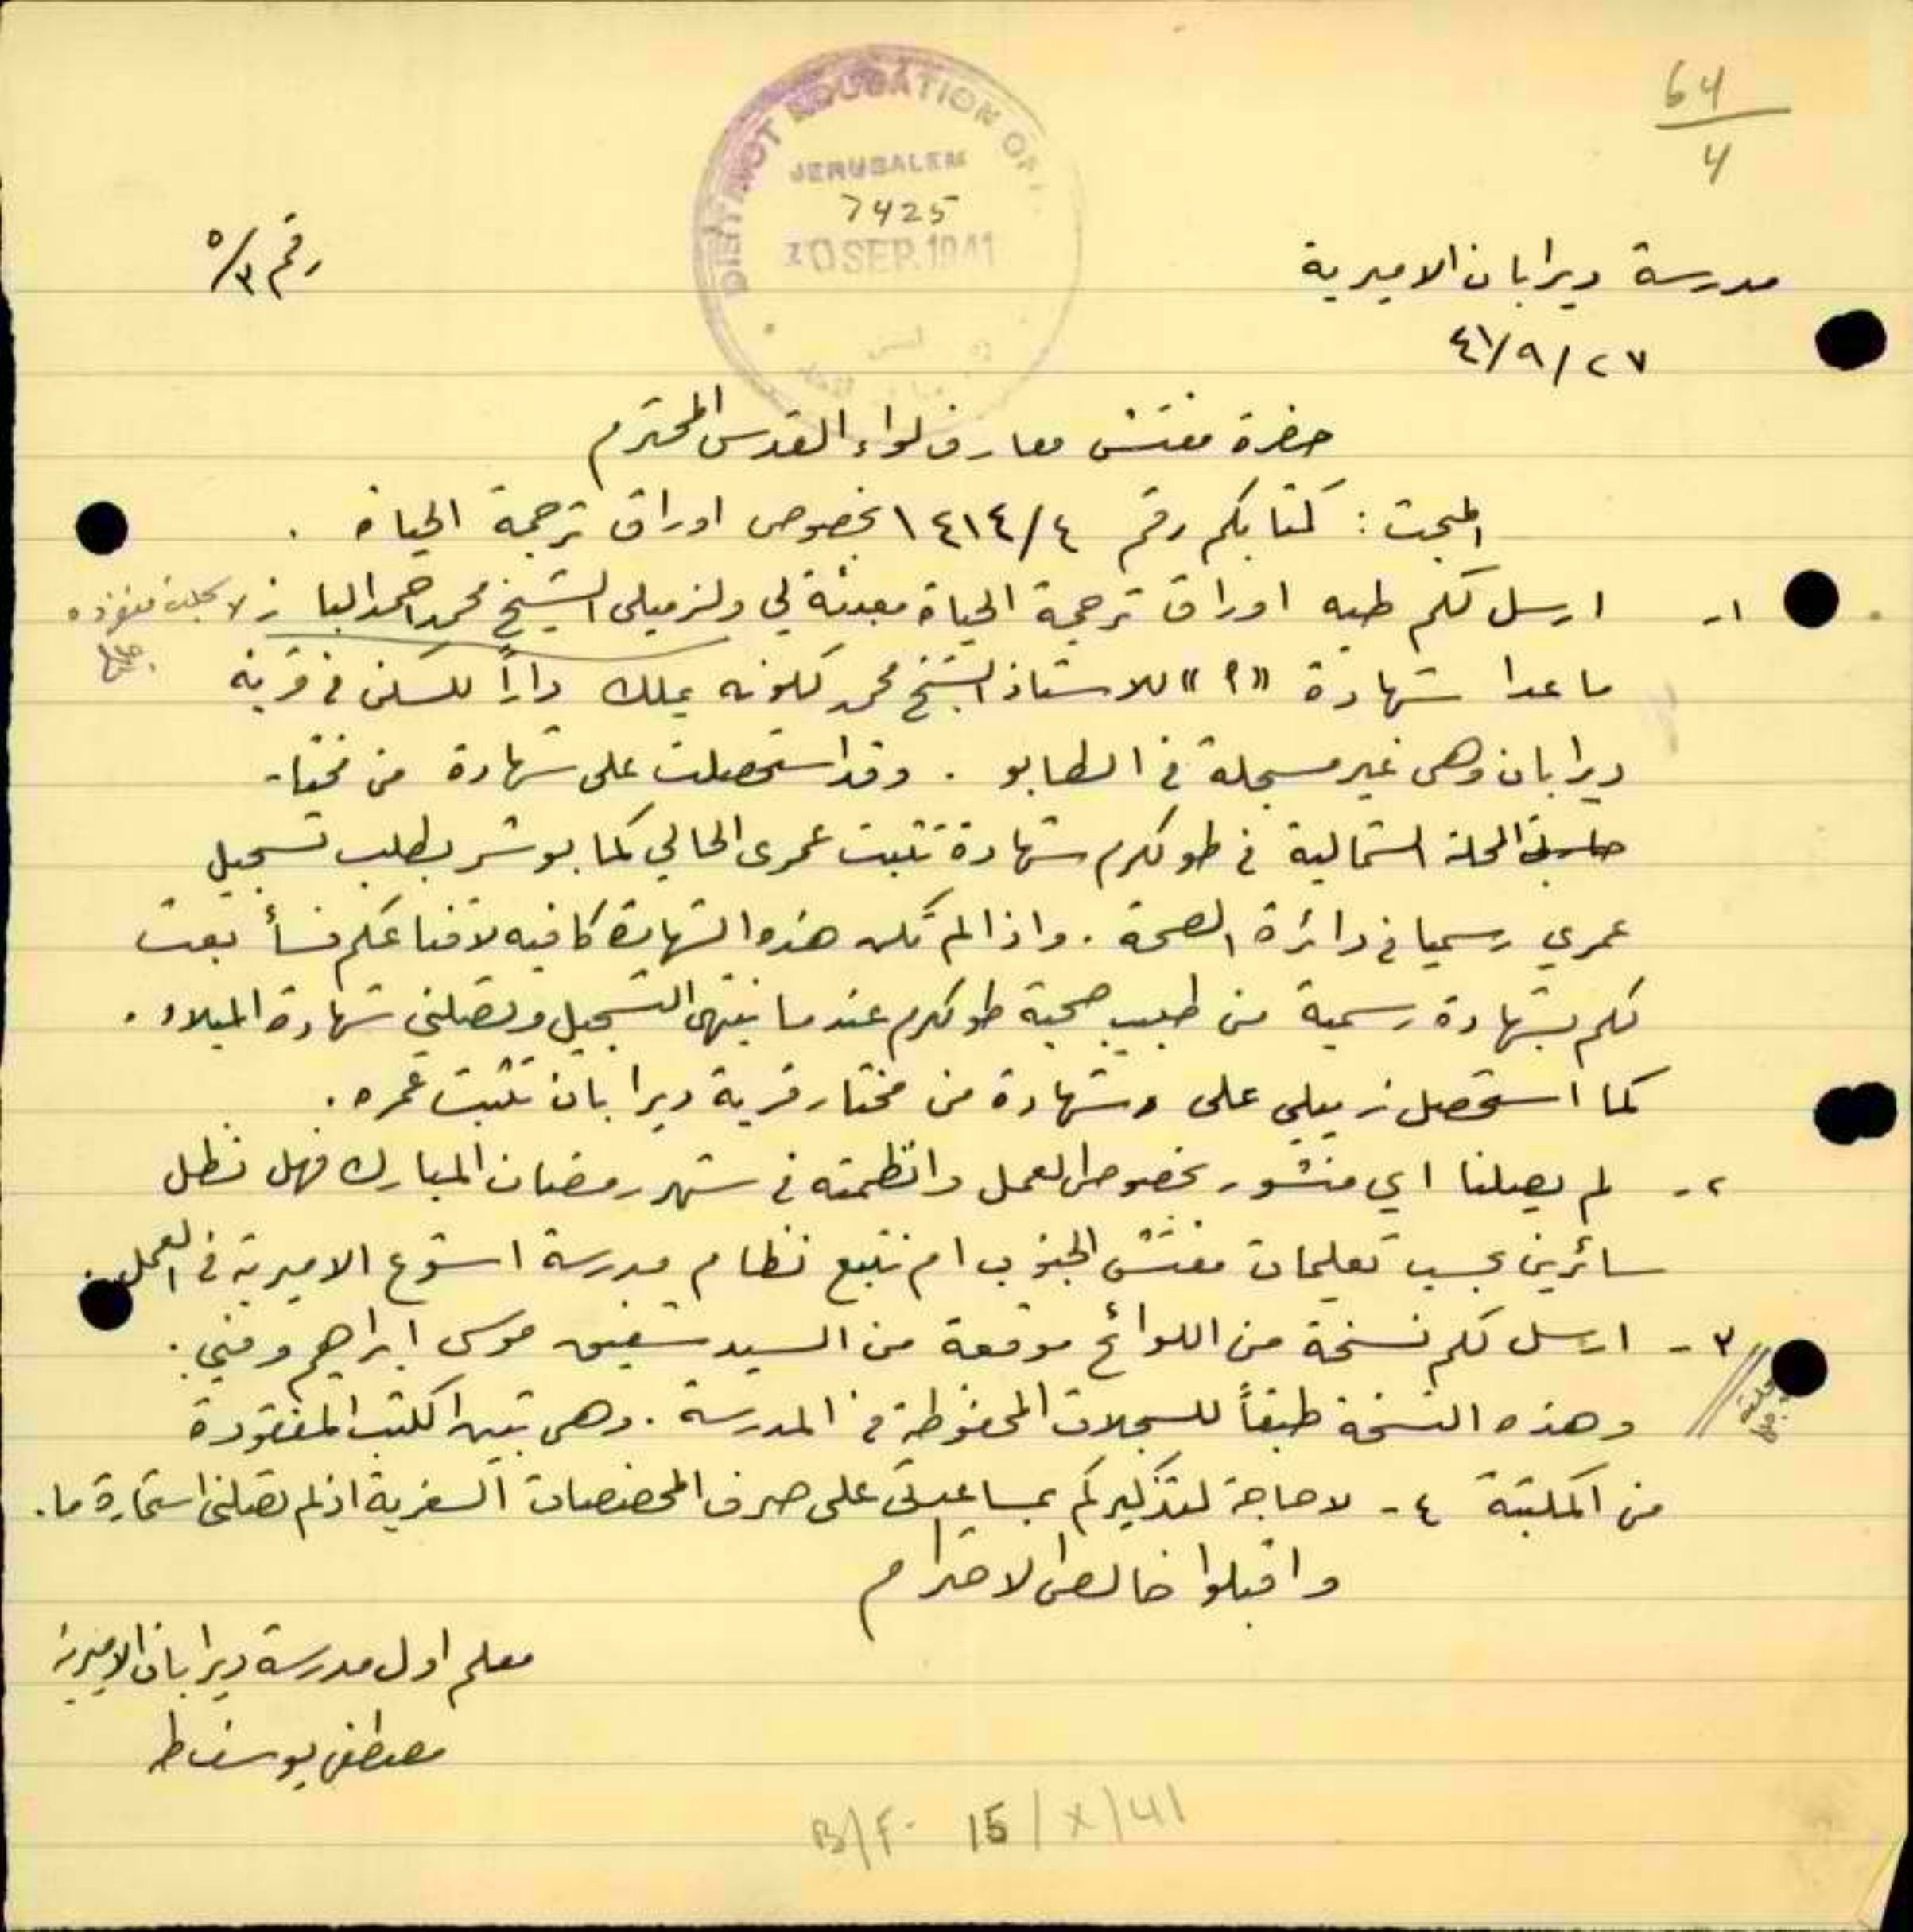 64
4
DISTRICT EDUCATION OF
JERUSALEM
7425
30 SEP. 1941
مدرسة ديرابان الاميرية
رقم ٥/٣
٢٧/٩/٤١
حضرة مفتش معارف لواء القدس المحترم
المبحث: كتابكم رقم ١٤١٤/٤ بخصوص اوراق ترجمة الحياة .
١ـ ارسل لكم طيه اوراق ترجمة الحياة معبئة لي ولزميلي الشيخ محمد احمد الباز
ما عدا شهادة «٩» للاستاذ الشيخ محمد لكونه يملك داراً للسكن في قرية
ديرابان وهي غير مسجلة في الطابو . وقد استحصلت على شهادة من مختار
المحلة الشمالية في طولكرم شهادة تثبت عمري الحالي كما بوشر بطلب تسجيل
عمري رسميا في دائرة الصحة . واذا لم تكن هذه الشهادة كافيه لاقناعكم فسأبعث
لكم بشهادة رسمية من طبيب صحية طولكرم عندما ينتهي التسجيل وتصلني شهادة الميلاد .
كما استحصل زميلي على شهادة من مختار قرية ديرابان تثبت عمره .
٢ـ لم يصلنا اي منشور بخصوص العمل وانظمته في شهر رمضان المبارك فهل نظل
سائرين بحسب تعليمات مفتش الجنوب ام نتبع نظام مدرسة اشوع الاميرية في العمل .
٣ـ ارسل لكم نسخة من اللوائح موقعة من السيد شفيق موسى ابراهيم ومني .
وهذه النسخة طبقاً للسجلات المحفوظة في المدرسة . وهي تبين الكتب المفقودة
من المكتبة ٤ـ لا حاجة لتذكيركم بمساعدتي على صرف المخصصات السفرية اذ لم تصلني استمارة ما .
واقبلوا خالص الاحترام
معلم اول مدرسة ديرابان الاميرية
مصطفى يوسف طه
B/F. 15/X/41